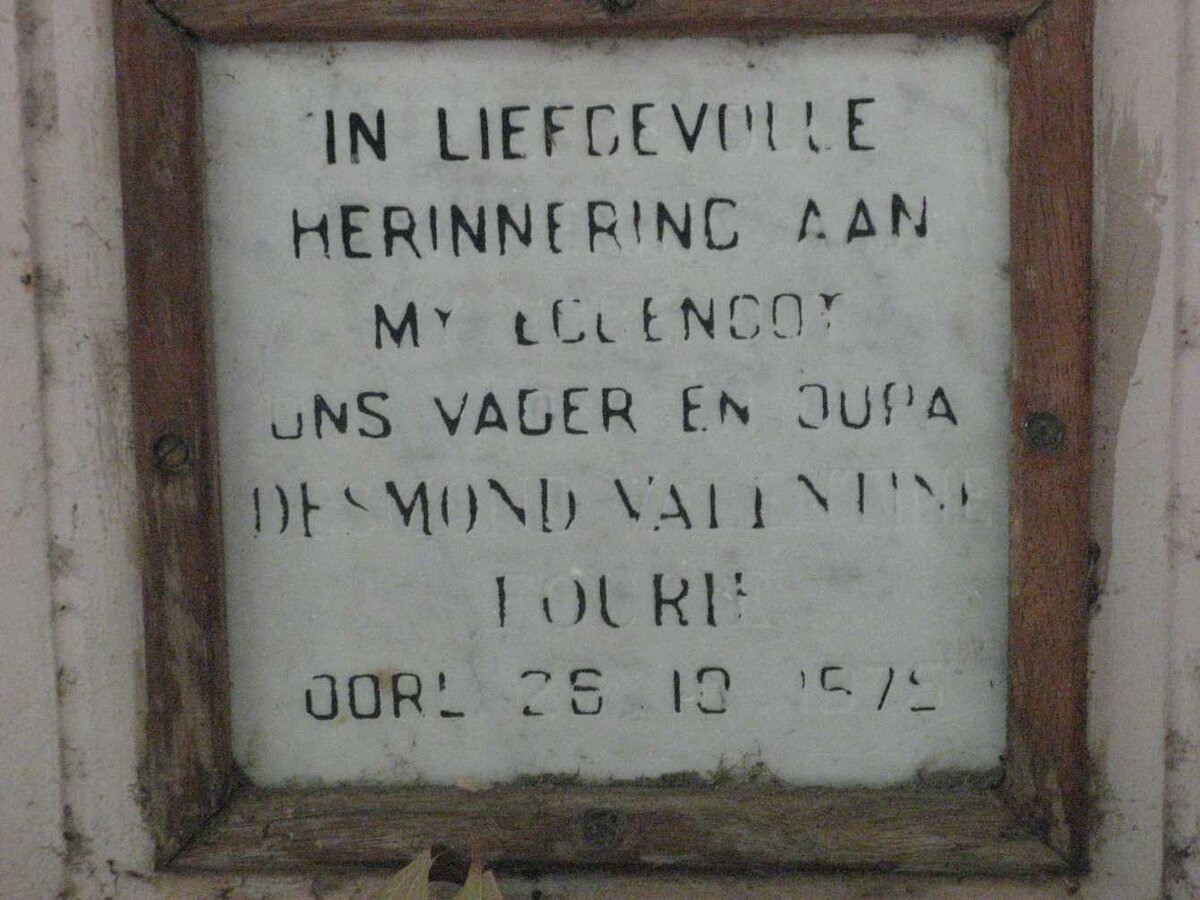 IN LIEFDEVOLLE
HERINNERING AAN
MY EGGENOOT
ONS VADER EN OUPA
DESMOND VALENTINE
FOURIE
OORL 26 10 1979